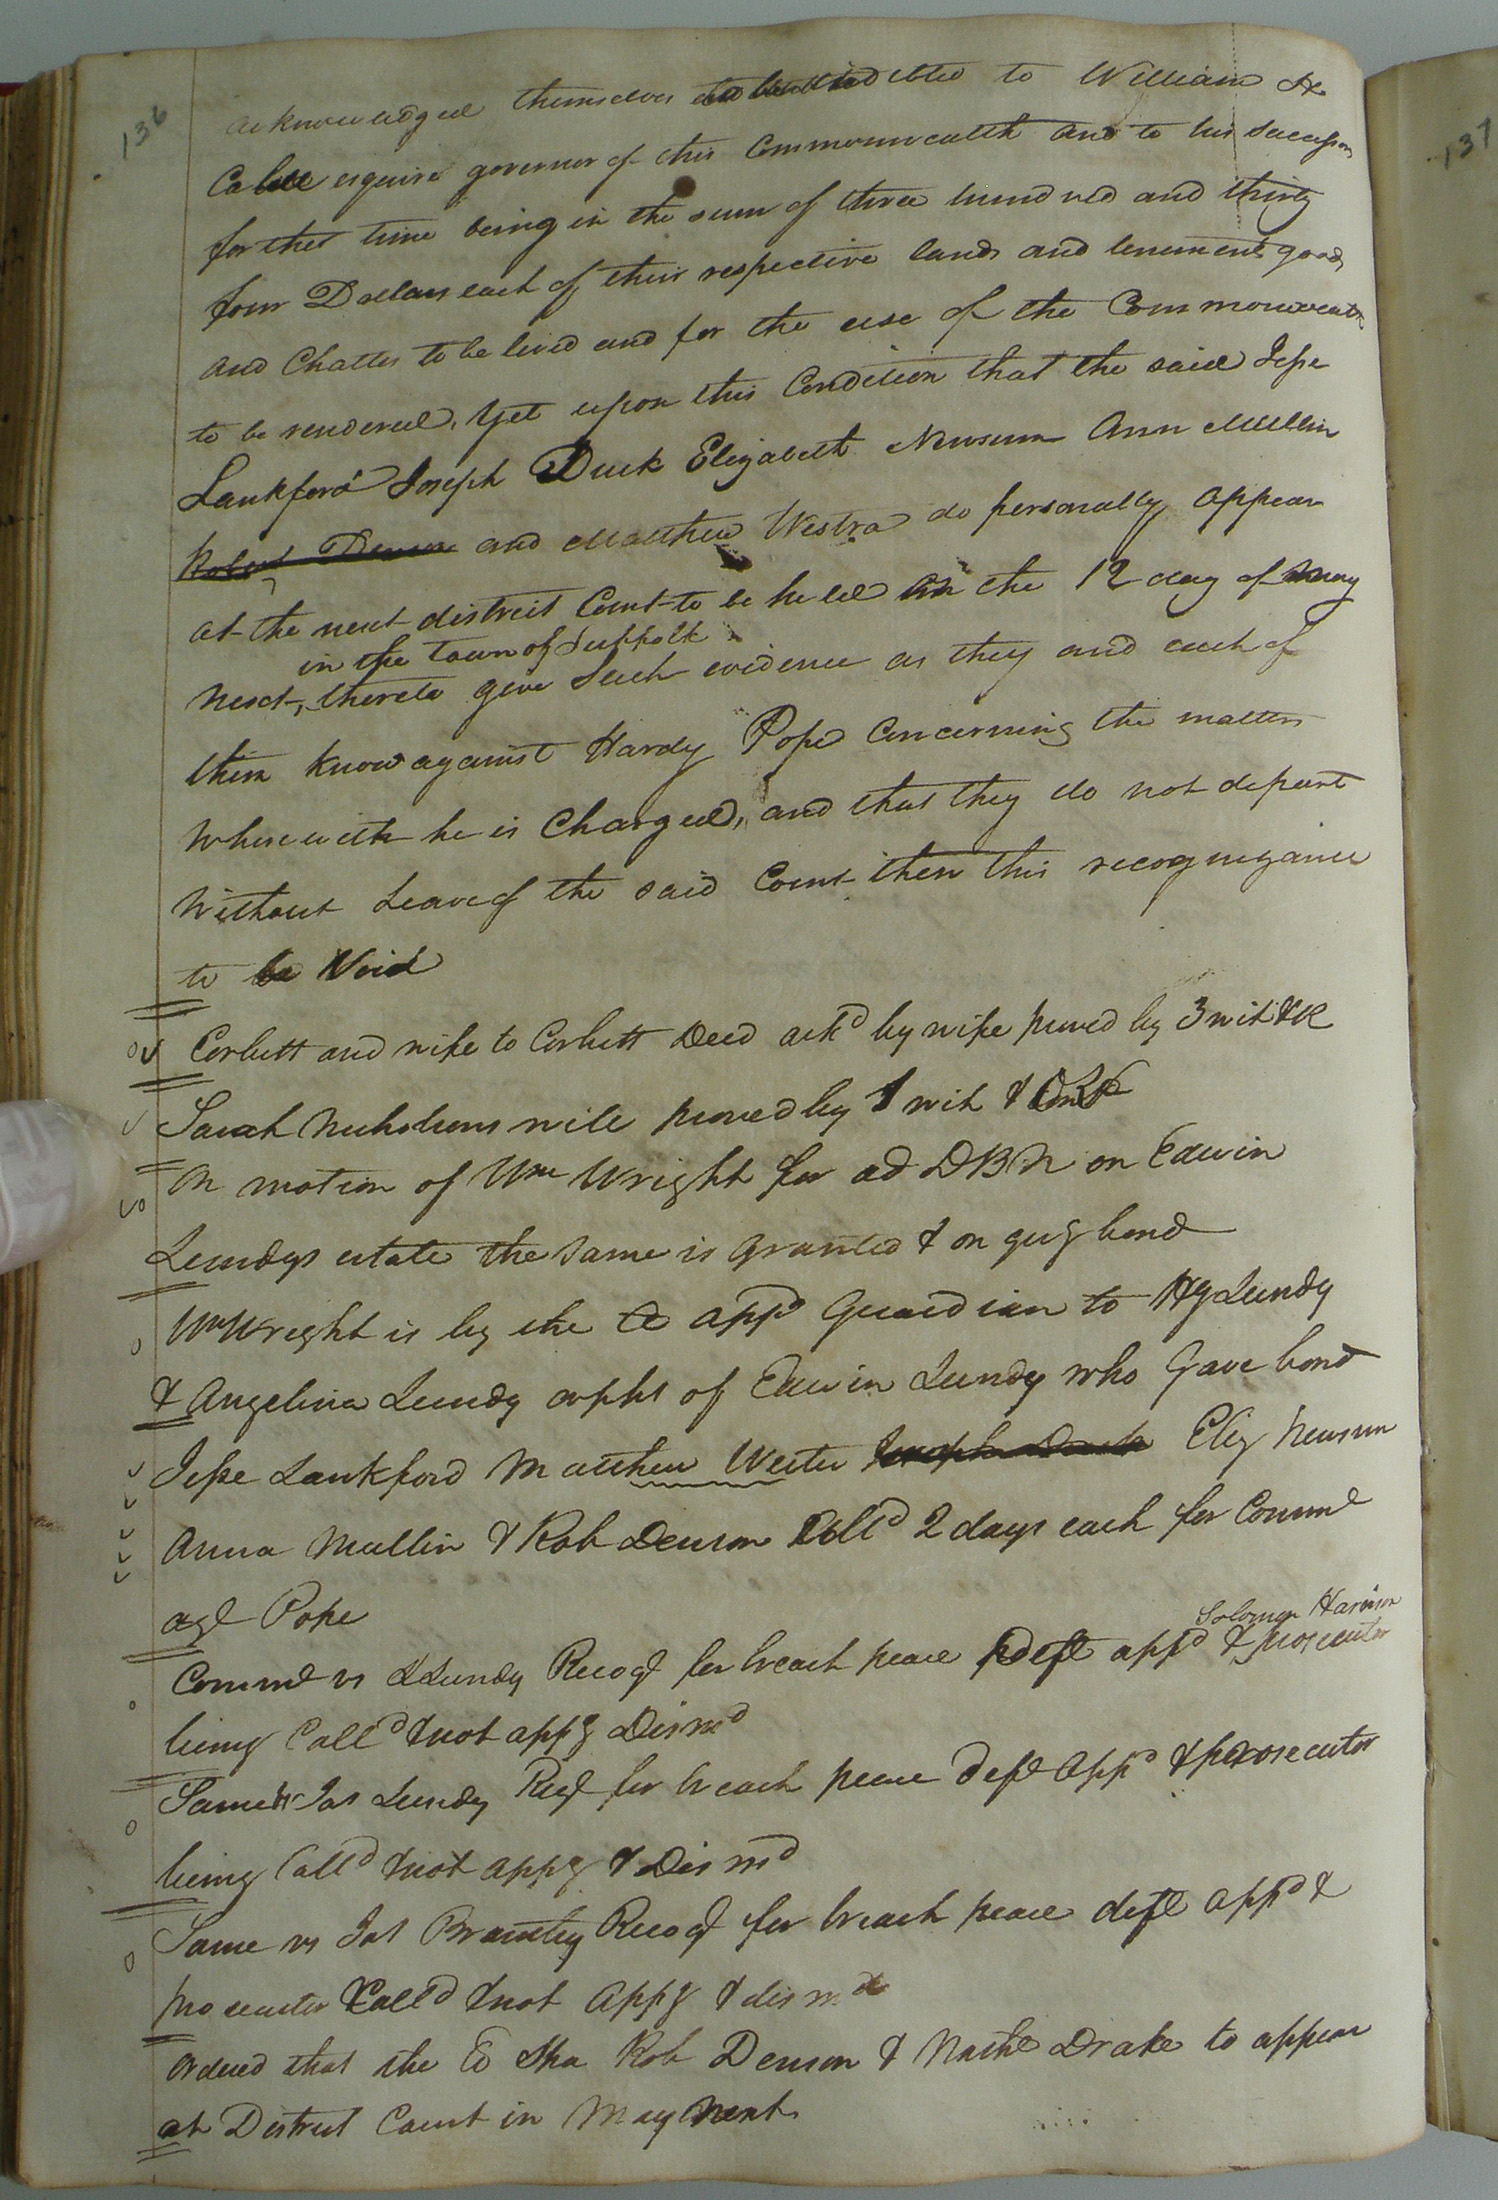 136
acknowledged themselves indebted to William H
Cabell esquire governor of this Commonwealth and to his Successors
for the time being in the sum of three hundred and thirty
four Dollars each of their respective lands and tenements goods
and Chattes to be levied and for the use of the Commonwealth
to be rendered, Yet upon this Condition that the said Jesse
Lankford Joseph Duck Elizabeth Newsum Ann Mullin
Robert Denson and Matthew Westra do personally appear
at the next district Court to be held on the 12 day of may
in the Town of Suffolk
next, there to give Such evidence as they and each of
them know against Hardy Pope Concerning the matters
Wherewith he is Charged, and that they do not depart
Without Leave of the said Court then this recognizance
to be Void
Corbett and wife to Corbett Deed ackd by wife proved by 3 wit & OR
Sarah Nicholsons will proved by 1 wit &
On motion of Wm Wright for ad DBN on Edwin
Lundys estate the same is granted & on gvg bond
Wm Wright is by the Ct appd Guardian to Hy Lundy
& Angelina Lundy orphs of Edwin Lundy who Gave bond
Jesse Lankford Matthew Wester Joseph Duck Eliz Newsum
Anna Mullin & Rob Denson 2 days each for Comml
agt Pope
Solomon Harrison
Comml vs Lundy Recog for breach peace deft appd & prosecutor
being Calld & not appg Dismd
Same vs Jas Lundy Recg for breach peace deft appd & prosecutor
being Calld & not appg & Dismd
Same vs Jas Brantley Recog for breach peace deft appd &
prosecutor Calld & not appg & dismd
Ordered that the Co Sha Rob Denson & Nathl Drake to appear
at District Court in May Next
137